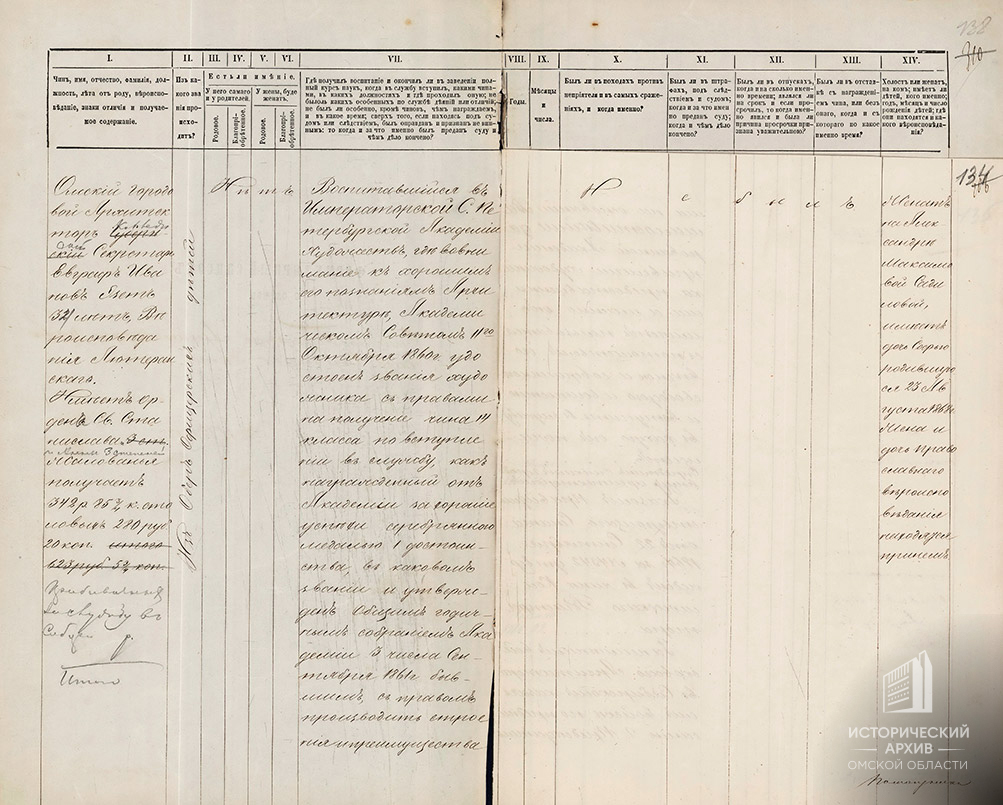 138
I.
Чинъ, имя, отчество, фамилія, дол-
жность, лѣта отъ роду, вѣроиспо-
вѣданіе, знаки отличія и получае-
мое содержаніе.
II.
Изъ ка-
кого зва
нія про-
исхо-
дитъ?
III. IV. V. VI.
Есть ли имѣніе.
У него самаго
и у родителей.
У жены, буде
женатъ.
Родовое.
Благопрі-
обрѣтенное.
Родовое.
Благопрі-
обрѣтенное.
VII.
Гдѣ получилъ воспитаніе и окончилъ ли въ заведеніи пол-
ный курсъ наукъ, когда въ службу вступилъ, какими чина-
ми, въ какихъ должностяхъ и гдѣ проходилъ оную; не
было ли какихъ особенныхъ по службѣ дѣяній или отличій;
не былъ ли особенно, кромѣ чиновъ, чѣмъ награжденъ
и въ какое время; сверхъ того, если находясь подъ су-
домъ или слѣдствіемъ, былъ оправданъ и признанъ не вин-
нымъ: то когда и за что именно былъ преданъ суду и
чѣмъ дѣло кончено?
VIII.
Годы.
IX.
Мѣсяцы
и
числа.
X.
Былъ ли въ походахъ противъ
непріятеля и въ самыхъ сраже-
ніяхъ, и когда именно?
XI.
Былъ ли въ штра-
фахъ, подъ слѣд-
ствіемъ и судомъ;
когда и за что имен
но преданъ суду;
и чѣмъ дѣло
кончено?
XII.
Былъ ли въ отпускахъ,
когда и на сколько имен-
но времени; являлся ли
на срокъ и если про-
срочилъ, то когда имен-
но явился и была ли
причина просрочки при-
знана уважительною?
XIII.
Былъ ли въ отстав-
кѣ съ награждені-
емъ чина, или безъ
онаго, когда и съ
котораго по какое
именно время?
XIV.
Холостъ или женатъ,
на комъ; имѣетъ ли
дѣтей, кого именно;
годъ, мѣсяцъ и число
рожденія дѣтей; гдѣ
они находятся и ка-
кого вѣроисповѣда-
нія?
134
Омскій Городо
вой Архитек
торъ
Секретарь
Евграфъ Ива
новъ Эзетъ
32 лѣтъ, Вѣ
роисповѣда
нія Лютеран
скаго.
Имѣетъ ор-
денъ Св. Ста
нислава 3 степ.
и Анны 3 степени
Жалованья
получаетъ
342 р 85 к. сто
ловыхъ 280 руб
20 коп. итого
623 руб 5 коп.
Итого
Изъ Оберъ Офицерскихъ дѣтей
Нѣтъ
Воспитавшійся въ
Императорской С. Пе
тербургской Академіи
Художествъ, гдѣ вовни
маніе къ хорошимъ
его познаніямъ Архи
тектуры, Академи
ческимъ Совѣтомъ 11го
Октября 1860 г удо
стоенъ званія худо
жника съ правами
на полученіе чина 14
класса по вступле
ніи въ службу, какъ
награжденный отъ
Академіи за хорошіе
успѣхи серебрянною
медалью 1 достоин-
ства, въ каковомъ
званіи и утверж-
денъ Общимъ годич-
нымъ собраніемъ Ака
деміи 3 числа Сен-
тября 1861 г быв-
шимъ, съ правомъ
производить строе
нія и преимущества
Не былъ
Женатъ
на Алек
сандрѣ
Максимо
вой
имѣетъ
дочь Софью
родившую
ся 23 Ав
густа 1864 г.
Жена и
дочь право
славнаго
вѣроиспо
вѣданія
находятся
при немъ
ИСТОРИЧЕСКИЙ
АРХИВ
ОМСКОЙ ОБЛАСТИ